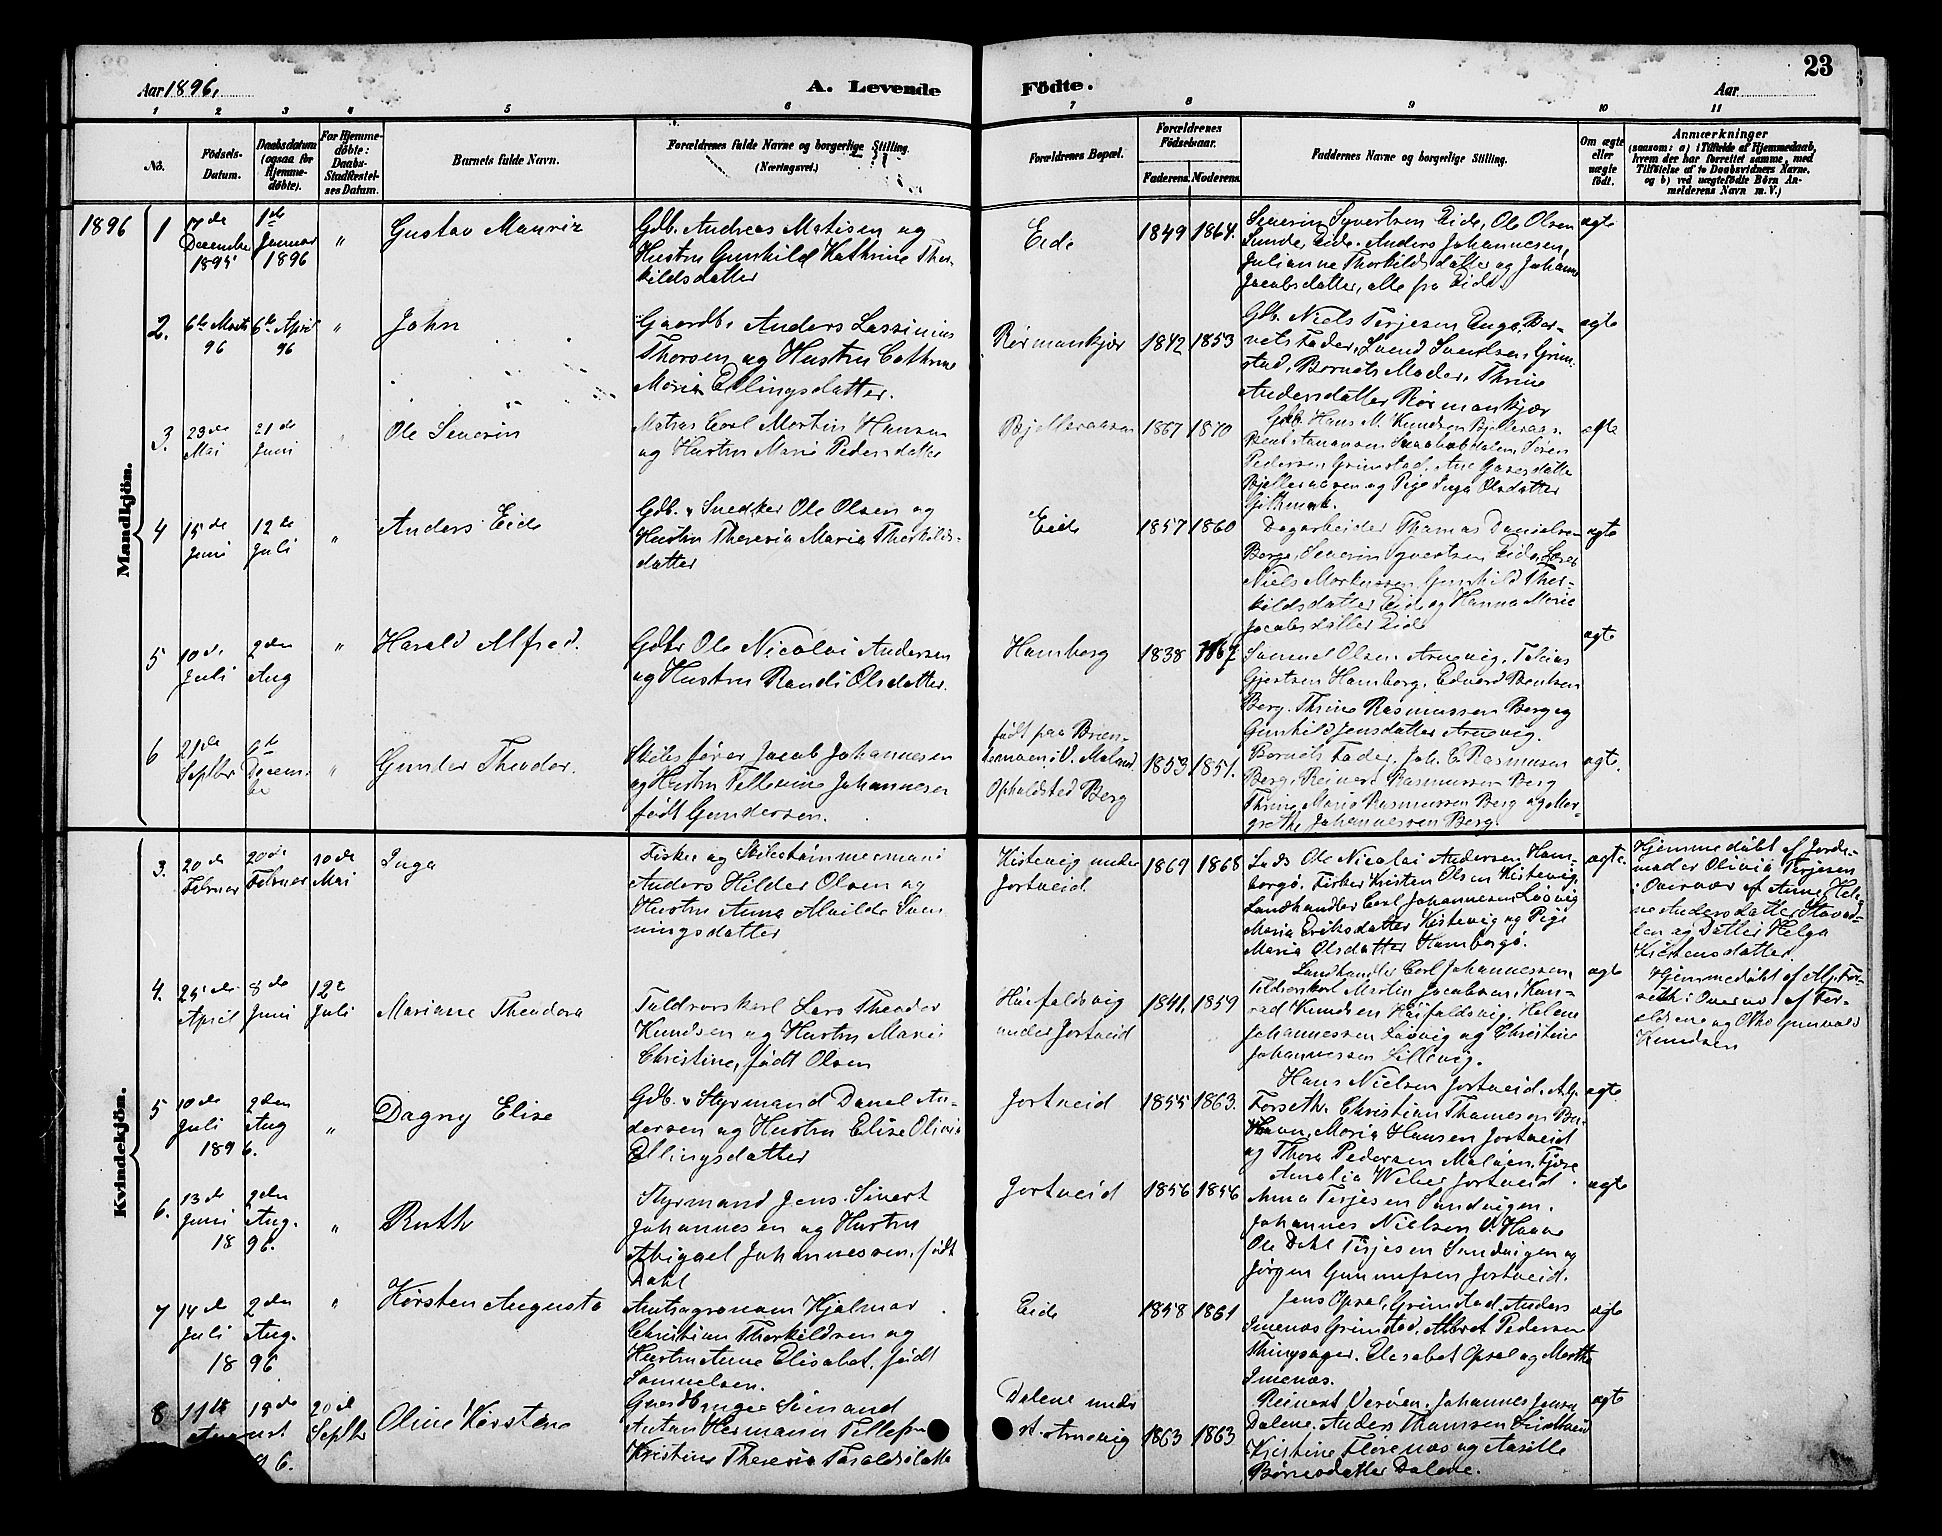 23
Aar 1896.
A. Levende
Födte.
Aar
1 2 3 4 5 6 7 8 9 10 11
No.
Födsels-
Datum.
Daabsdatum
(ogsaa for
Hjemme-
döbte).
For Hjemme-
döbte:
Daabs-
Stadfæstel-
ses Datum.
Barnets fulde Navn.
Forældrenes fulde Navne og borgerlige Stilling.
(Næringsvei.)
Forældrenes Bopæl.
Forældrenes
Födselsaar.
Faderens.
Moderens.
Faddernes Navne og borgerlige Stilling.
Om ægte
eller
uægte
födt.
Anmærkninger
(saasom: a) i Tilfælde af Hjemmedaab,
hvem der har forrettet samme, med
Tilföielse af to Daabsvidners Navne,
og b) ved uægtefödte Börn An-
melderens Navn m. V.)
Mandkjön.
1896
1
7de
Decembe
1895
1ste
Januar
1896
"
Gustav Mauriz
Gdb. Andreas Matisen og
Hustru Gunhild Kathrine Thor-
kildsdatter
Eide
1849
1864.
Severin Syvertsen Eide, Ole Olsen
Sunde, Eide. Anders Johannesen,
Julianne Thorkildsdatter og Johanne
Jacobsdatter, alle fra Eide.
ægte
2.
6te Marts
96
6te April
96
"
John
Gaardb. Anders Lassinius
Thorsen og Hustru Cathrine
Maria Ellingsdatter.
Rørmankjær
1842
1853
Gdb. Niels Terjesen Enge, Bar-
nets Fader, Svend Svendsen, Grim-
stad, Barnets Moder, Thrine
Andersdatter Rørmankjær
ægte
3.
23de
Mai
21de
Juni
"
Ole Severin
Matros Carl Martin Hansen
og Hustru Maria Pedersdatter
Bjelleraasen
1867
1870
Gdb. Hans M. Knudsen Bjelleraas.
Pedersen Grimstad, Ane
Bjelleraasen og Pige Inga Olsdatter
ægte
4
15de
Juni
12te
Juli
"
Anders Eide
Gdb. & Snedker Ole Olsen og
Hustru Theresia Maria Thorkilds-
datter
Eide
1857
1860
Dagarbeider Thomas Danielsen
Berge, Severin Syvertsen Eide,
Niels Markussen, Gunhild Thor-
kildsdatter Eide og Hanna Marie
Jacobsdatter Eide
ægte
5
10de
Juli
2den
Aug
"
Harald Alfred.
Gdbr Ole Nicolai Andersen
og Hustru Randi Olsdatter.
Hamborg
1838
1867
Samuel Olsen Arnevig, Tobias
Gjertsen Hamborg, Edvard Bentsen
Berg. Thrine Rasmussen Berg og
Gunhild Jensdatter Arnevig.
ægte
6
21de
Septbr
6te
Decem-
be
"
Gunder Theodor.
Skibsfører Jacob Johannesen
og Hustru Tellesine Johannesen
født Gundersen.
født paa Brem-
Opholdsted Berg
1853
1851.
Barnets Fader, Joh. E. Rasmussen
Berg, Reinert Rasmussen Berg
Thrine Maria Rasmussen Berg og Mar-
grethe Johannessen Berg.
ægte.
Kvindekjön.
3.
20de
Februar
20de
Februar
10de
Mai
Inga
Fisker og Skibstømmermand
Anders Hilder Olsen og
Hustru Anna Alvilde Sven
ningsdatter
Kistevig under
Jortveid
1869
1868
Lods Ole Nicolai Andersen, Ham-
borgø. Fisker Kristen Olsen Kistevig,
Landhandler Carl Johannesen Løøvig
Maria Eriksdatter Kistevig og Pige
Maria Olsdatter Hamborgø.
ægte.
Hjemmedøbt af Jorde-
moder Olivia Terjesen
i Overvær af Anne Hele-
ne Andersdatter
og Datter Helga
Kristensdatter.
4.
25de
April
8de
Juni
12te
Juli
Mariane Theodora
Toldrorskarl Lars Theodor
Knudsen og Hustru Marie
Christine, født Olsen
Høifaldsvig
under Jortveid
1841.
1859
Landhandler Carl Johannessen,
Toldrorskarl Martin Jacobsen, Kon-
rad Knudsen Høifaldsvig, Helene
Johannessen Løøvig og Christine
Johannessen Lillevig.
ægte
Hjemmedøbt af Alf. For-
seth i Overvær af For-
ældrene og Otto Gunvald
Knudsen
5
10de
Juli
2den
Aug
1896.
"
Dagny Elise
Gdb. & Styrmand Danel An-
dersen og Hustru Elise Olivia
Ellingsdatter
Jortveid
1855
1863.
Hans Nielsen Jortveid, Alf.
Forseth. Christian Thomesen
Maria Hansen Jortveid
og Thora Pedersen Maløen, Fjære
ægte.
6.
13de
Juni
2den
Aug.
1896.
"
Ruth
Styrmand Jens Sivert
Johannesen og Hustru
Abigael Johannessen, født
Dahl
Jortveid
1856
1856
Amalia Weber Jortveid.
Anna Terjesen Sandvigen.
Johannes Nielsen
Ole Dahl Terjesen Sandvigen og
Jørgen Gunnufsen Jortveid.
ægte
7
14de
Juli
2den
Aug.
1896
"
Kirsten Augusta
Amtsagronom Hjalmar
Christian Thorkildsen og
Hustru Anne Elisabet, født
Samuelsen.
Eide
1858
1861
Jens Opsal, Grimstad. Anders
Imenæs Grimstad, Albret Pedersen
Thingsager. Elisabet Opsal og Martha
Imenæs.
ægte
8
11te
August
20de
Septbr
96.
Oline Kirstine
Gaardbruger Sømand
Antan Hermann Tellefsen
Kristine Theresia Taraldsdatter
Dalene under
st. Arnevig
1863
1863
Reinert Verøen, Johannes Jensen
Dalene, Anders Thomsen
Kristine Florenæs og Aasille
Børresdatter Dalene.
ægte